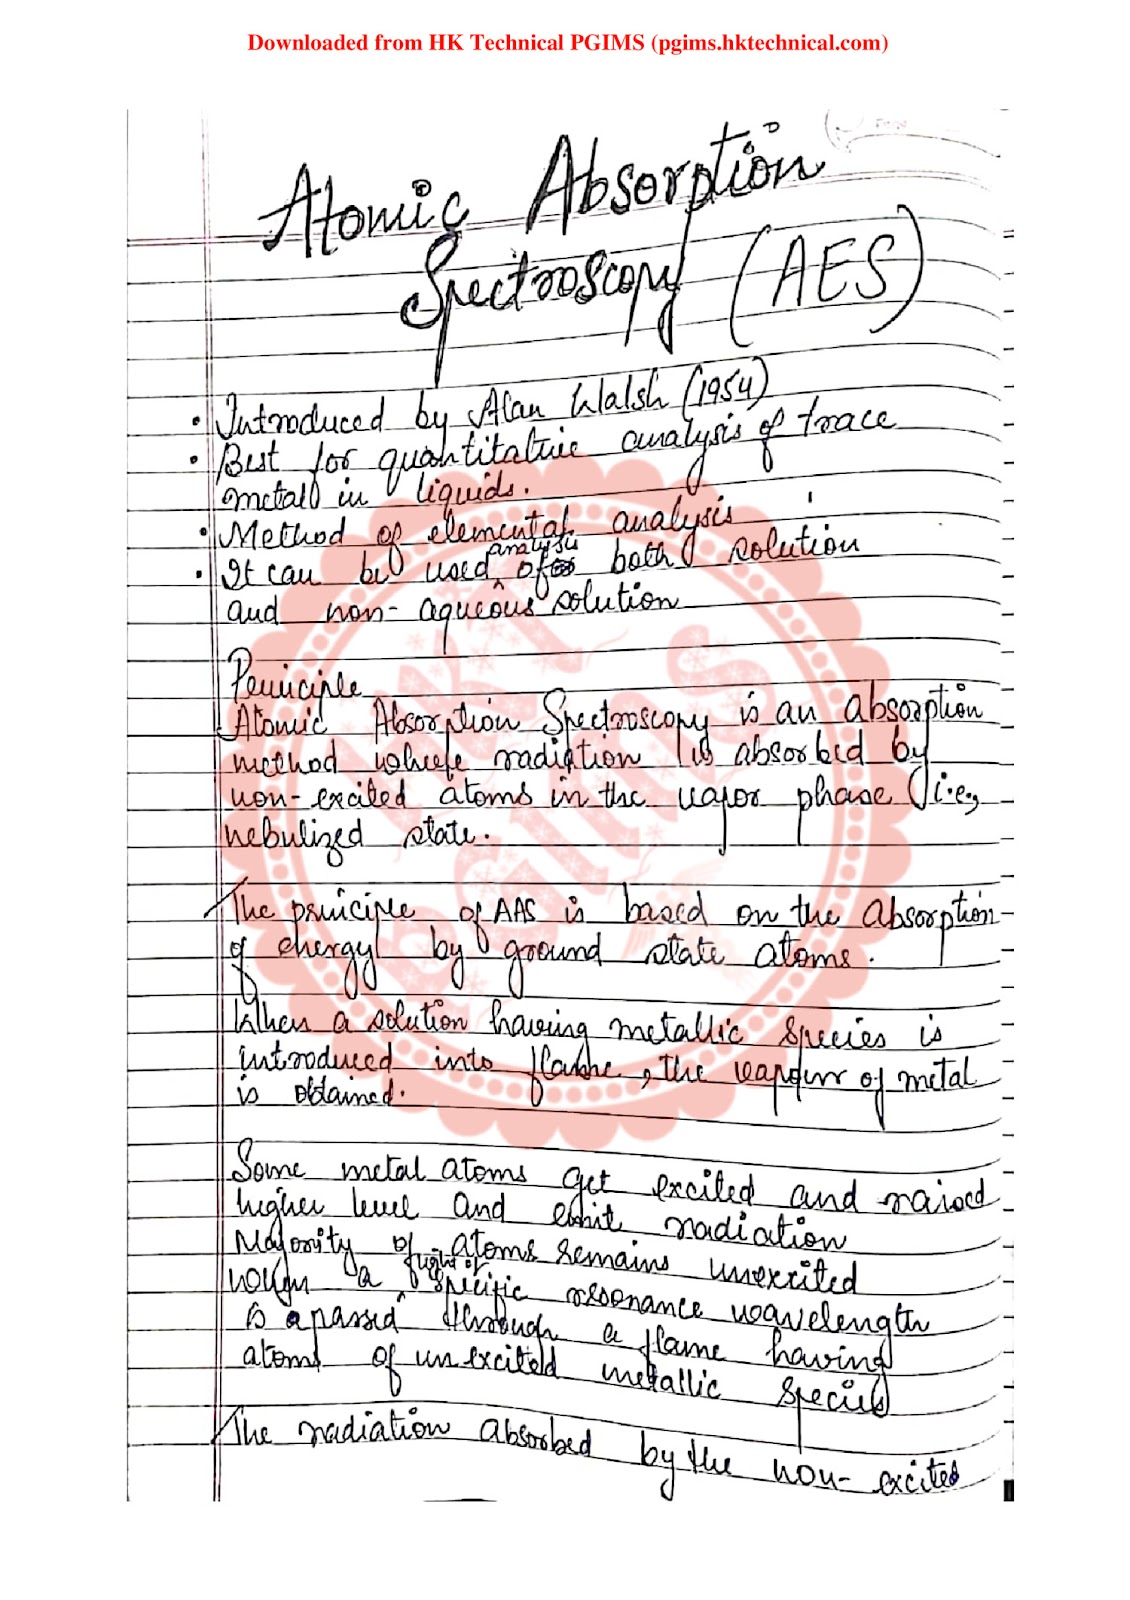 Downloaded from HK Technical PGIMS (pgims.hktechnical.com)
Atomic Absorption
Spectroscopy (AES)
• Introduced by Alan Walsh (1954)
• Best for quantitative analysis of trace
metal in liquids.
• Method of elemental analysis
• It can be used analysis of both solution
and non-aqueous solution
Principle
Atomic Absorption Spectroscopy is an absorption
method where radiation is absorbed by
non-excited atoms in the vapor phase (i.e,
nebulized state.
The principle of AAS is based on the absorption
of energy by ground state atoms.
When a solution having metallic species is
introduced into flame, the vapour of metal
is obtained.
Some metal atoms get excited and raised
higher level and emit radiation
Majority of atoms remains unexcited
when a light of specific resonance wavelength
is passed through a flame having
atoms of unexcited metallic species
The radiation absorbed by the non-excited
HKT
PGIMS